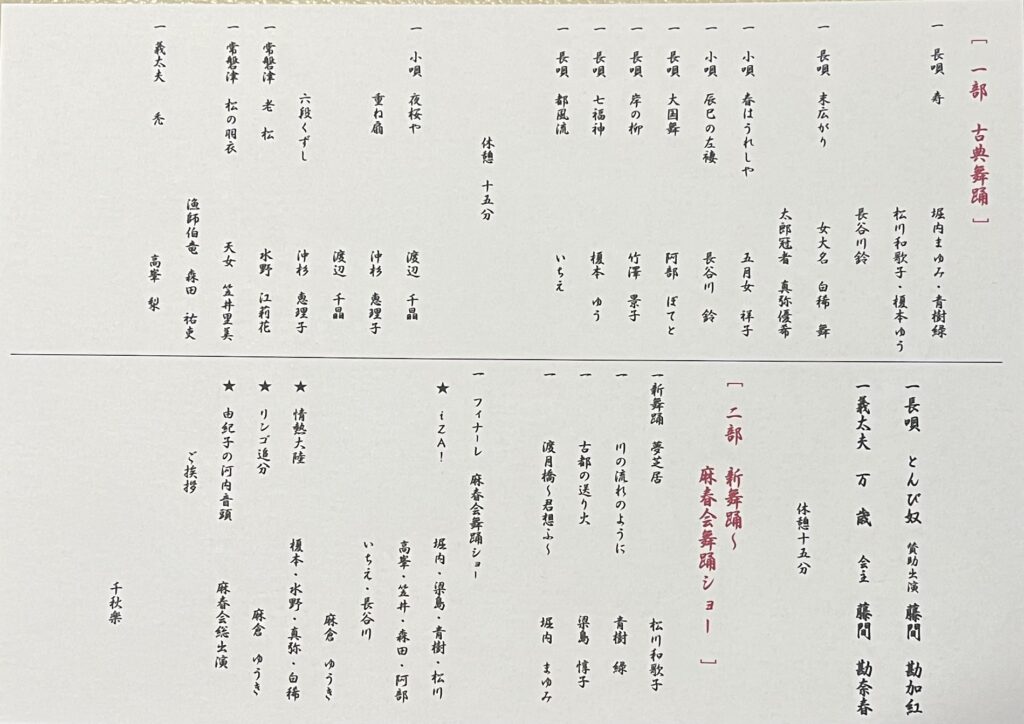 [ 一部 古典舞踊 ]
一 長唄 寿 堀内まゆみ・青樹緑
松川和歌子・榎本ゆう
長谷川鈴
一 長唄 末広がり 女大名 白稀 舞
太郎冠者 真弥優希
一 小唄 春はうれしや 五月女 祥子
一 小唄 辰巳の左褄 長谷川 鈴
一 長唄 大国舞 阿部 ぽてと
一 長唄 岸の柳 竹澤 景子
一 長唄 七福神 榎本 ゆう
一 長唄 都風流 いちえ
休憩 十五分
一 小唄 夜桜や 渡辺 千晶
重ね扇 沖杉 恵理子
渡辺 千晶
六段くずし 沖杉 恵理子
一 常磐津 老松 水野 江莉花
一 常磐津 松の羽衣 天女 笠井里美
漁師伯竜 森田 祐吏
一 義太夫 禿 高峯 梨
一 長唄 とんび奴 賛助出演 藤間 勘加紅
一 義太夫 万歳 会主 藤間 勘奈春
休憩十五分
[ 二部 新舞踊~
麻春会舞踊ショー ]
一 新舞踊 夢芝居 松川和歌子
一 川の流れのように 青樹 緑
一 古都の送り火 梁島 惇子
一 渡月橋~君想ふ~ 堀内 まゆみ
一 フィナーレ 麻春会舞踊ショー
★ iZA! 堀内・梁島・青樹・松川
高峯・笠井・森田・阿部
いちえ・長谷川
麻倉 ゆうき
★ 情熱大陸 榎本・水野・真弥・白稀
★ リンゴ追分 麻倉 ゆうき
★ 由紀子の河内音頭 麻春会総出演
ご挨拶
千秋楽